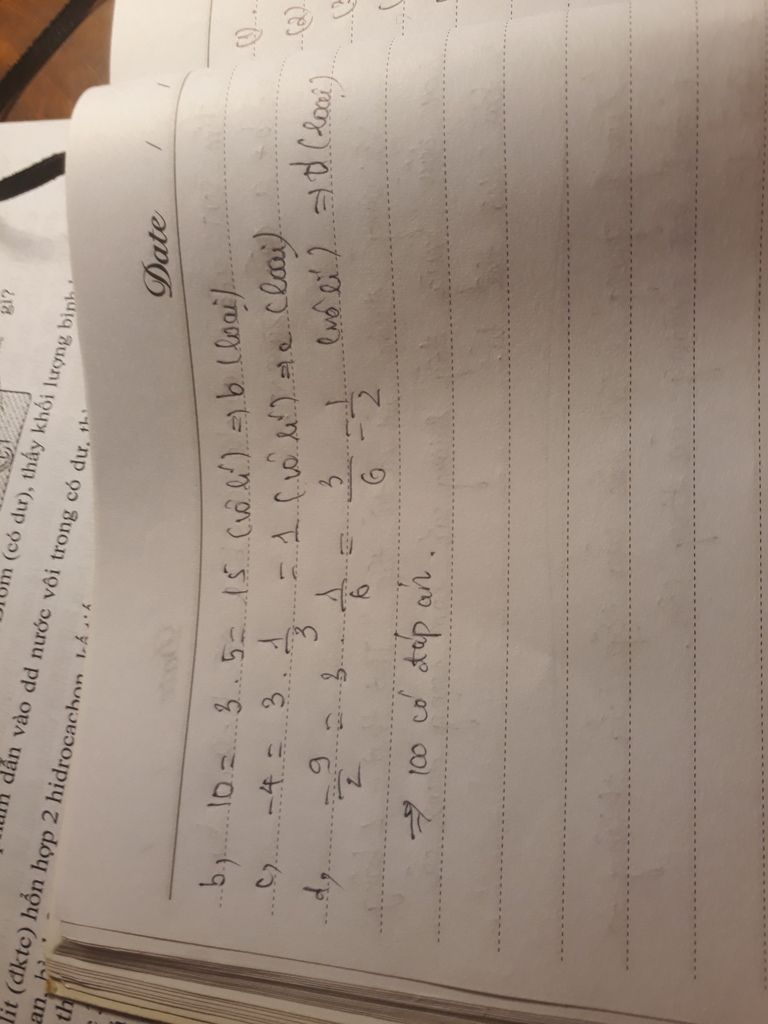 (1).
(2)
(3
Date / /
b, 10 = 3 . 5 = 15 (vô lí) => b (loại)
c, -4 = 3 . 1/3 = 1 (vô lí) => c (loại)
d, -9/2 = 3 . 1/6 = 3/6 = 1/2 (vô lí) => d (loại)
=> 100 có đáp án.
gì?
(có dư), thấy khối lượng bình
dẫn vào dd nước vôi trong có dư, th
lít (đktc) hỗn hợp 2 hidrocacbon
an,
th